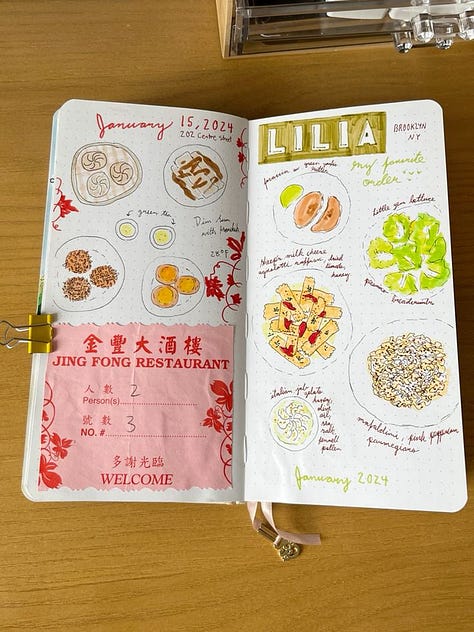 January 15, 2024
202 Centre street
green tea
Dim Sum
with
28°F
金豐大酒樓
JING FONG RESTAURANT
人數 2
Person(s)
號數 3
NO. #
多謝光臨
WELCOME
LILIA
BROOKLYN
NY
my favorite
order
green garlic
butter
little gem lettuce
breadcrumbs
sheep's milk cheese
agnolotti, saffron, dried
tomato,
honey
italian job gelato
honey
olive
oil,
sea
salt,
fennel
pollen
mafaldini, pink peppercorn
parmigiano
January 2024